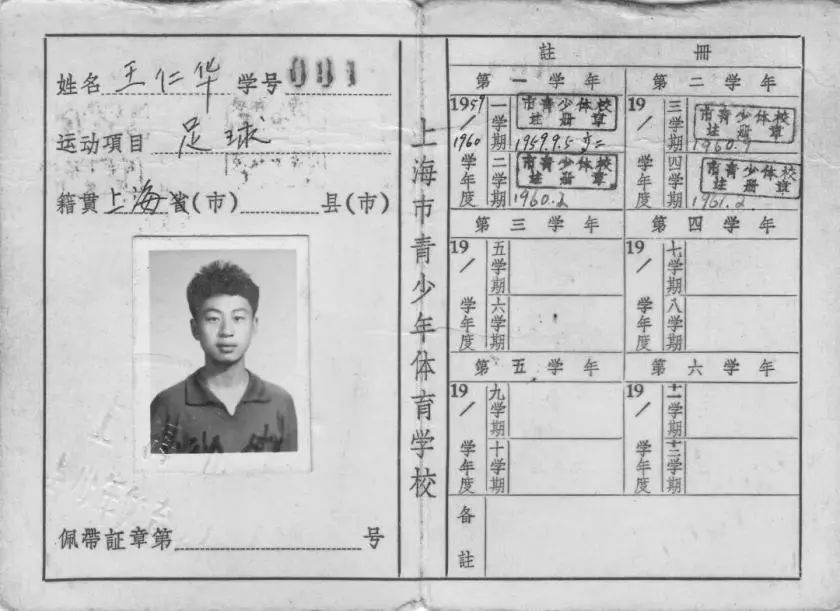 姓名 王仁华 学号 001
运动項目 足球
籍貫 上海省(市) 县(市)
佩帶証章第 号
上海市青少年体育学校
註 冊
第一学年
1959/1960学年度
一学期 市青少体校註册章 1959.9.5
二学期 市青少体校註册章 1960.2
第二学年
19 / 学年度
三学期 市青少体校註册章 1960.9
四学期 市青少体校註册章 1961.2
第三学年
19 / 学年度
五学期
六学期
第四学年
19 / 学年度
七学期
八学期
第五学年
19 / 学年度
九学期
十学期
第六学年
19 / 学年度
十一学期
十二学期
备註